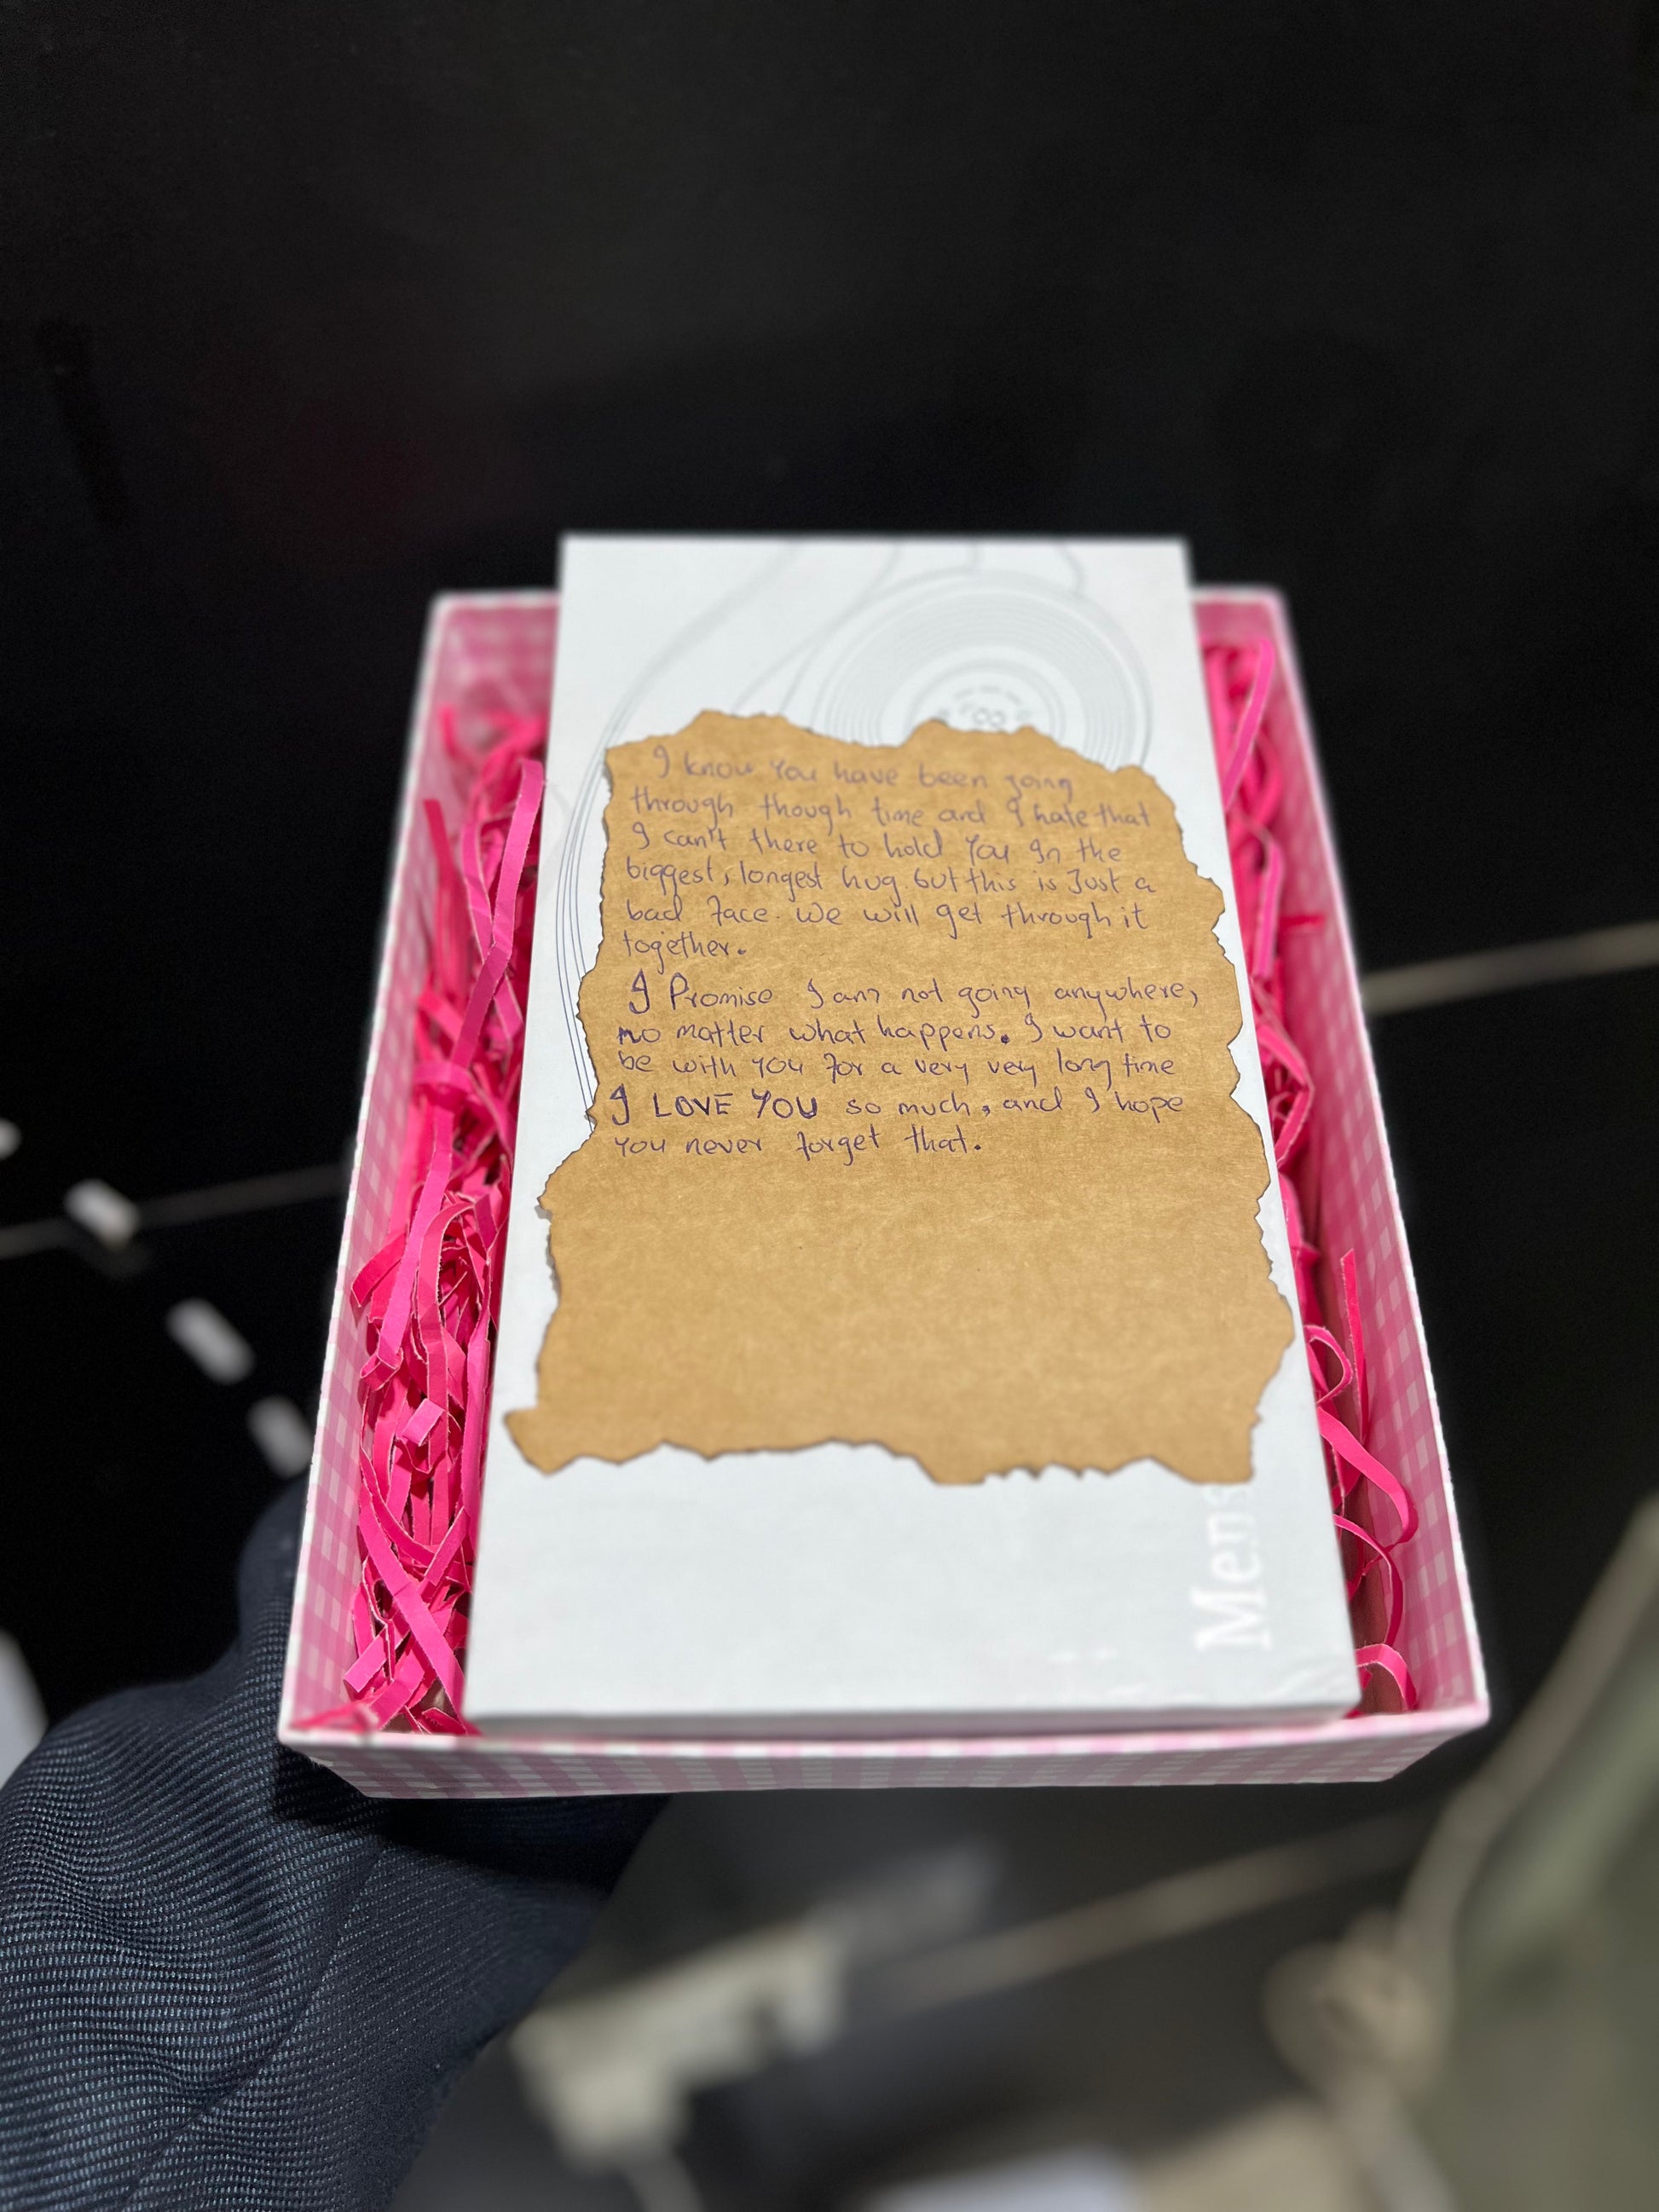 I know you have been going
through though time and I hate that
I can't there to hold you In the
biggest, longest hug. but this is Just a
bad face. We will get through it
together.
I Promise I am not going anywhere,
no matter what happens. I want to
be with you for a very very long time
I LOVE YOU so much, and I hope
you never forget that.
Mens